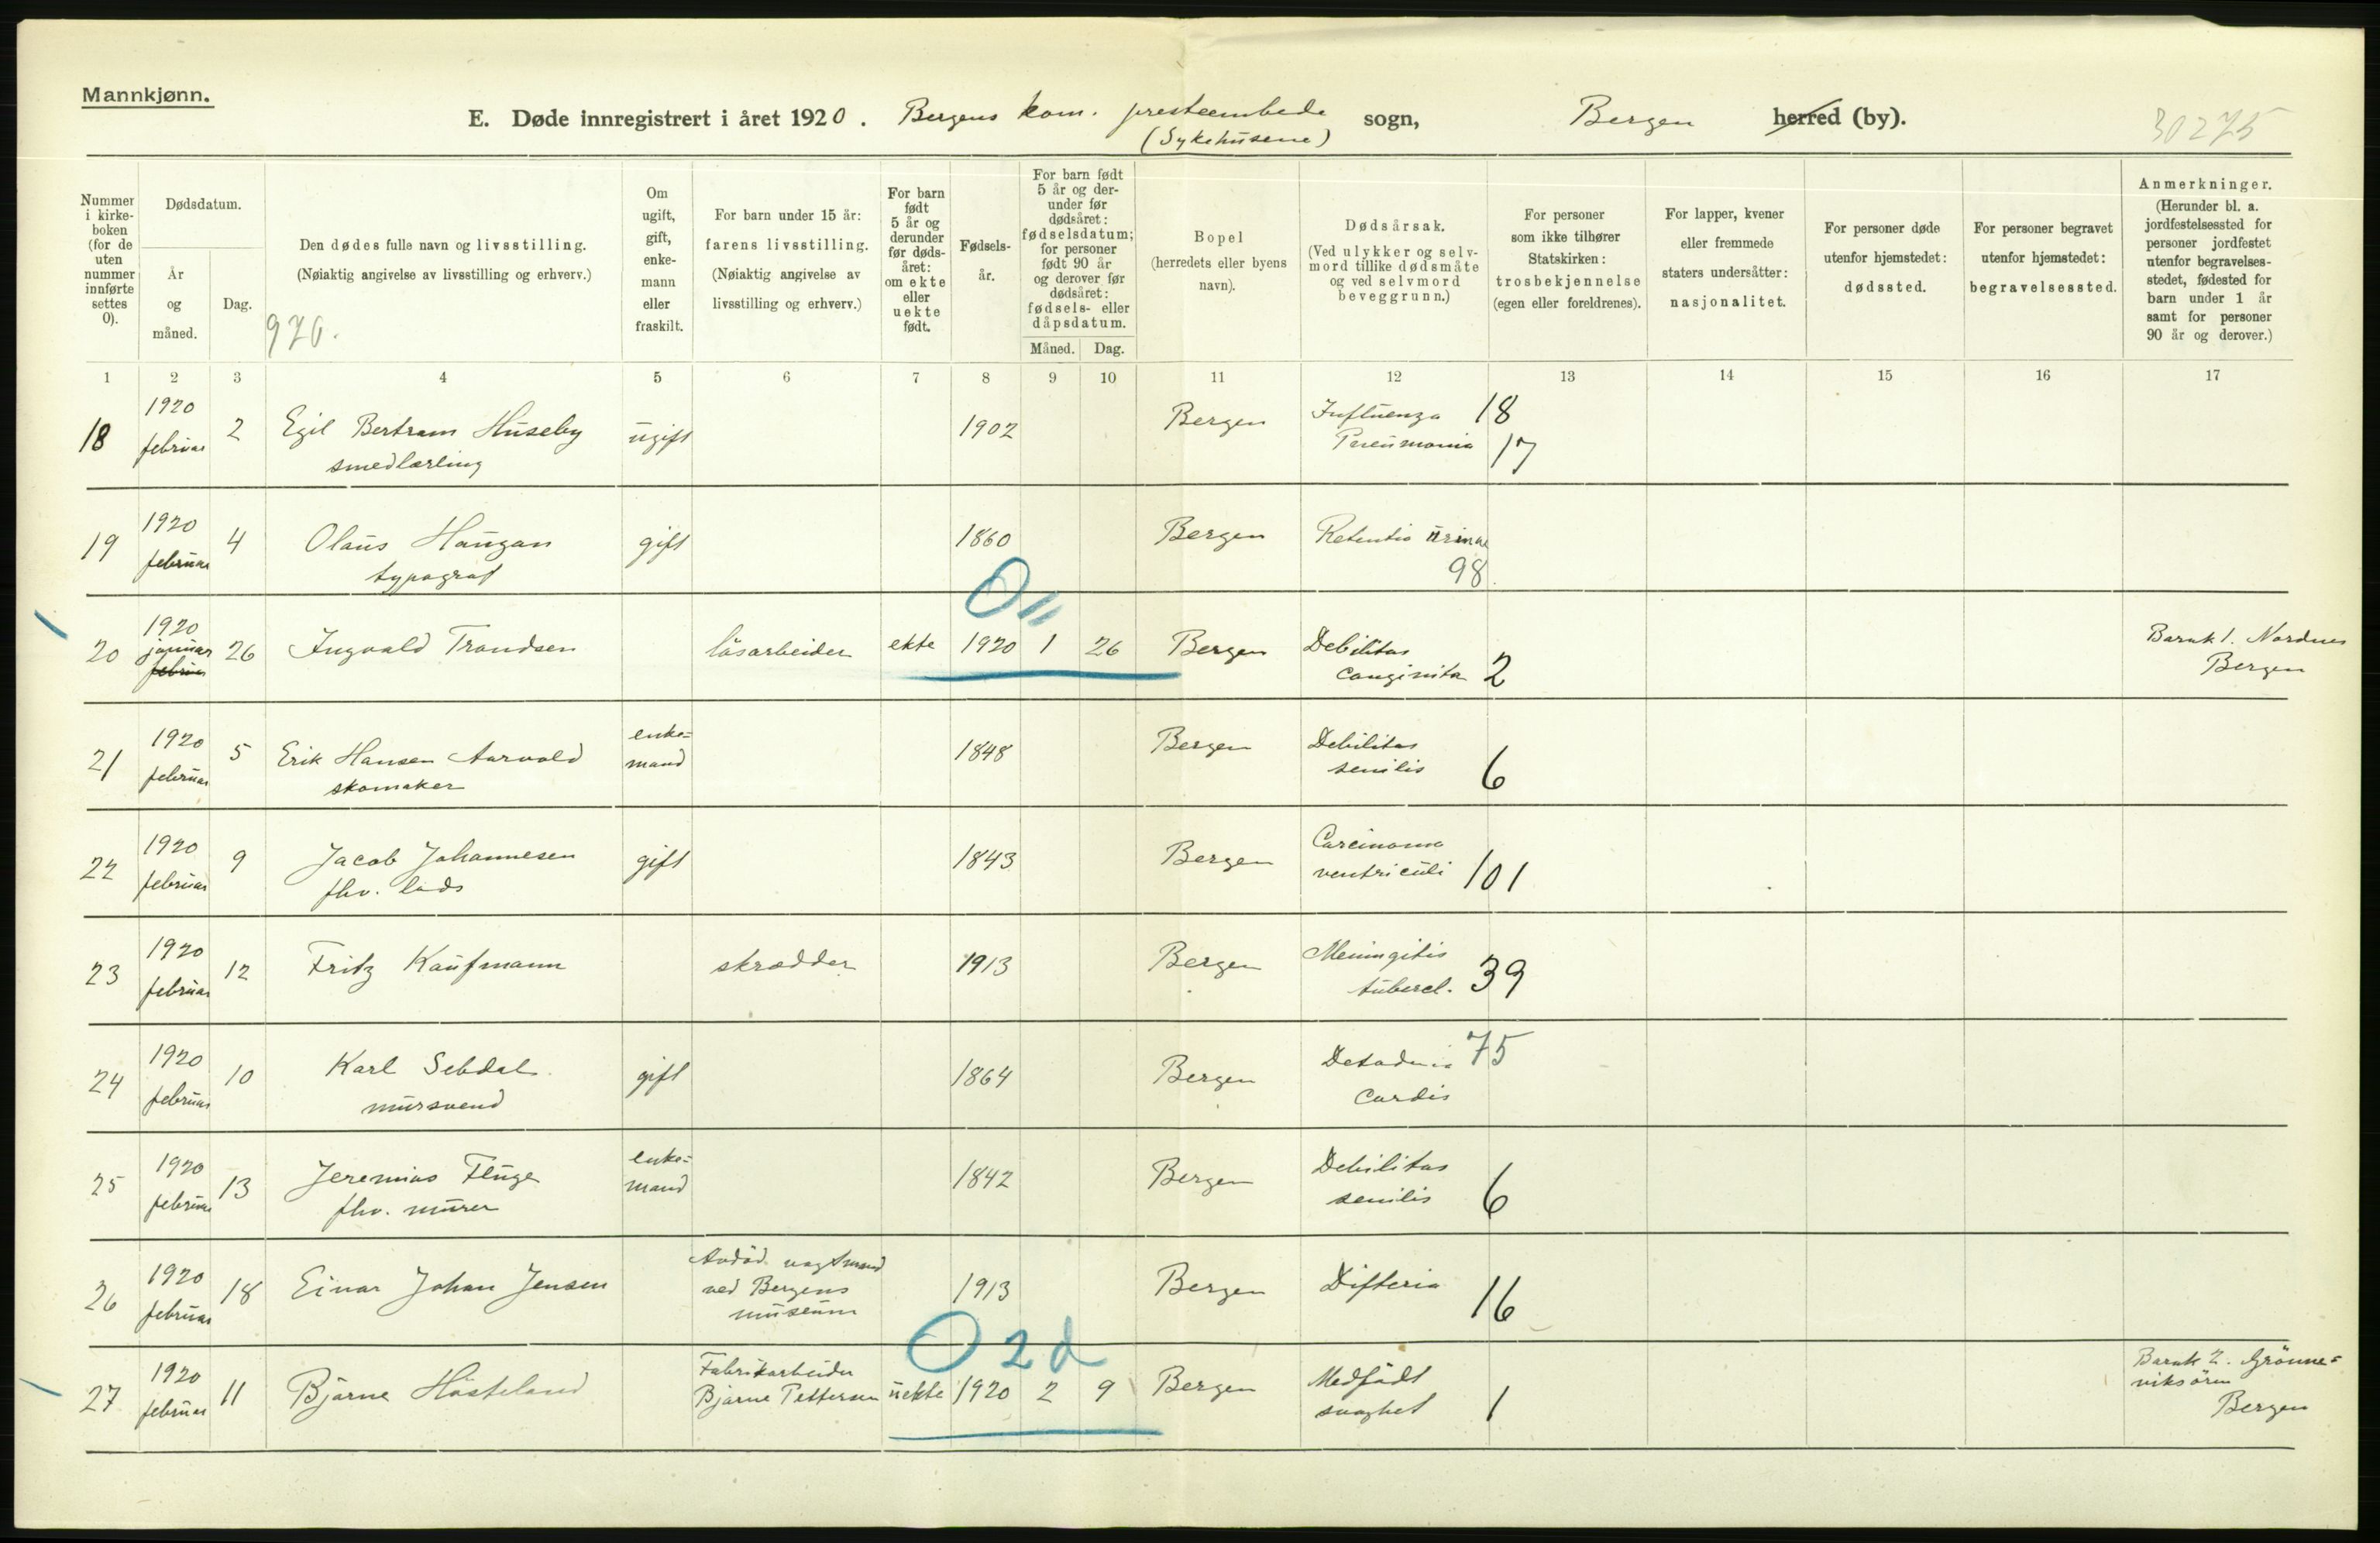 Mannkjønn.
E. Døde innregistrert i året 1920. Bergens kom. presteembede (Sykehusene) sogn, Bergen herred (by).
30275
Nummer i kirkeboken (for de uten nummer innførte settes 0).
Dødsdatum.
År og måned.
Dag.
Den dødes fulle navn og livsstilling. (Nøiaktig angivelse av livsstilling og erhverv.)
920.
Om ugift, gift, enkemann eller fraskilt.
For barn under 15 år: farens livsstilling. (Nøiaktig angivelse av livsstilling og erhverv.)
For barn født 5 år og derunder før dødsåret: om ekte eller uekte født.
Fødselsår.
For barn født 5 år og derunder før dødsåret: fødselsdatum; for personer født 90 år og derover før dødsåret: fødsels- eller dåpsdatum.
Måned. Dag.
Bopel (herredets eller byens navn).
Dødsårsak. (Ved ulykker og selvmord tillike dødsmåte og ved selvmord beveggrunn.)
For personer som ikke tilhører Statskirken: trosbekjennelse (egen eller foreldrenes).
For lapper, kvener eller fremmede staters undersåtter: nasjonalitet.
For personer døde utenfor hjemstedet: dødssted.
For personer begravet utenfor hjemstedet: begravelsessted.
Anmerkninger. (Herunder bl. a. jordfestelsessted for personer jordfestet utenfor begravelsesstedet, fødested for barn under 1 år samt for personer 90 år og derover.)
1 2 3 4 5 6 7 8 9 10 11 12 13 14 15 16 17
18 1920 februar 2 Egil Bertram Huseby smedlærling ugift 1902 Bergen Influenza Pneumonia 18 17
19 1920 februar 4 Olaus Haugan typograf gift 1860 Bergen Retentio urinae 98.
20 1920 januar februar 26 Ingvald Trondsen løsarbeider ekte 1920 1 26 Bergen Debilitas conginita 2 Barak 1. Nordnes Bergen
21 1920 februar 5 Erik Hansen Aarvold skomaker enkemand 1848 Bergen Debilitas senilis 6
22 1920 februar 9 Jacob Johannesen fhv. lods gift 1843 Bergen Carcinoma ventriculi 101
23 1920 februar 12 Fritz Kaufmann skrædder 1913 Bergen Meningitis tubercl. 39
24 1920 februar 10 Karl Sebdal mursvend gift 1864 Bergen Cordis 75
25 1920 februar 13 Jeremias Fluge fhv. murer enkemand 1842 Bergen Debilitas senilis 6
26 1920 februar 18 Einar Johan Jensen Avdød vagtmand ved Bergens museum 1913 Bergen Difteria 16
O 2 d
27 1920 februar 11 Bjarne Høsteland Fabrikarbeider Bjarne Pettersen uekte 1920 2 9 Bergen Medfødt svaghet 1 Barak 2. Grønneviksøren Bergen